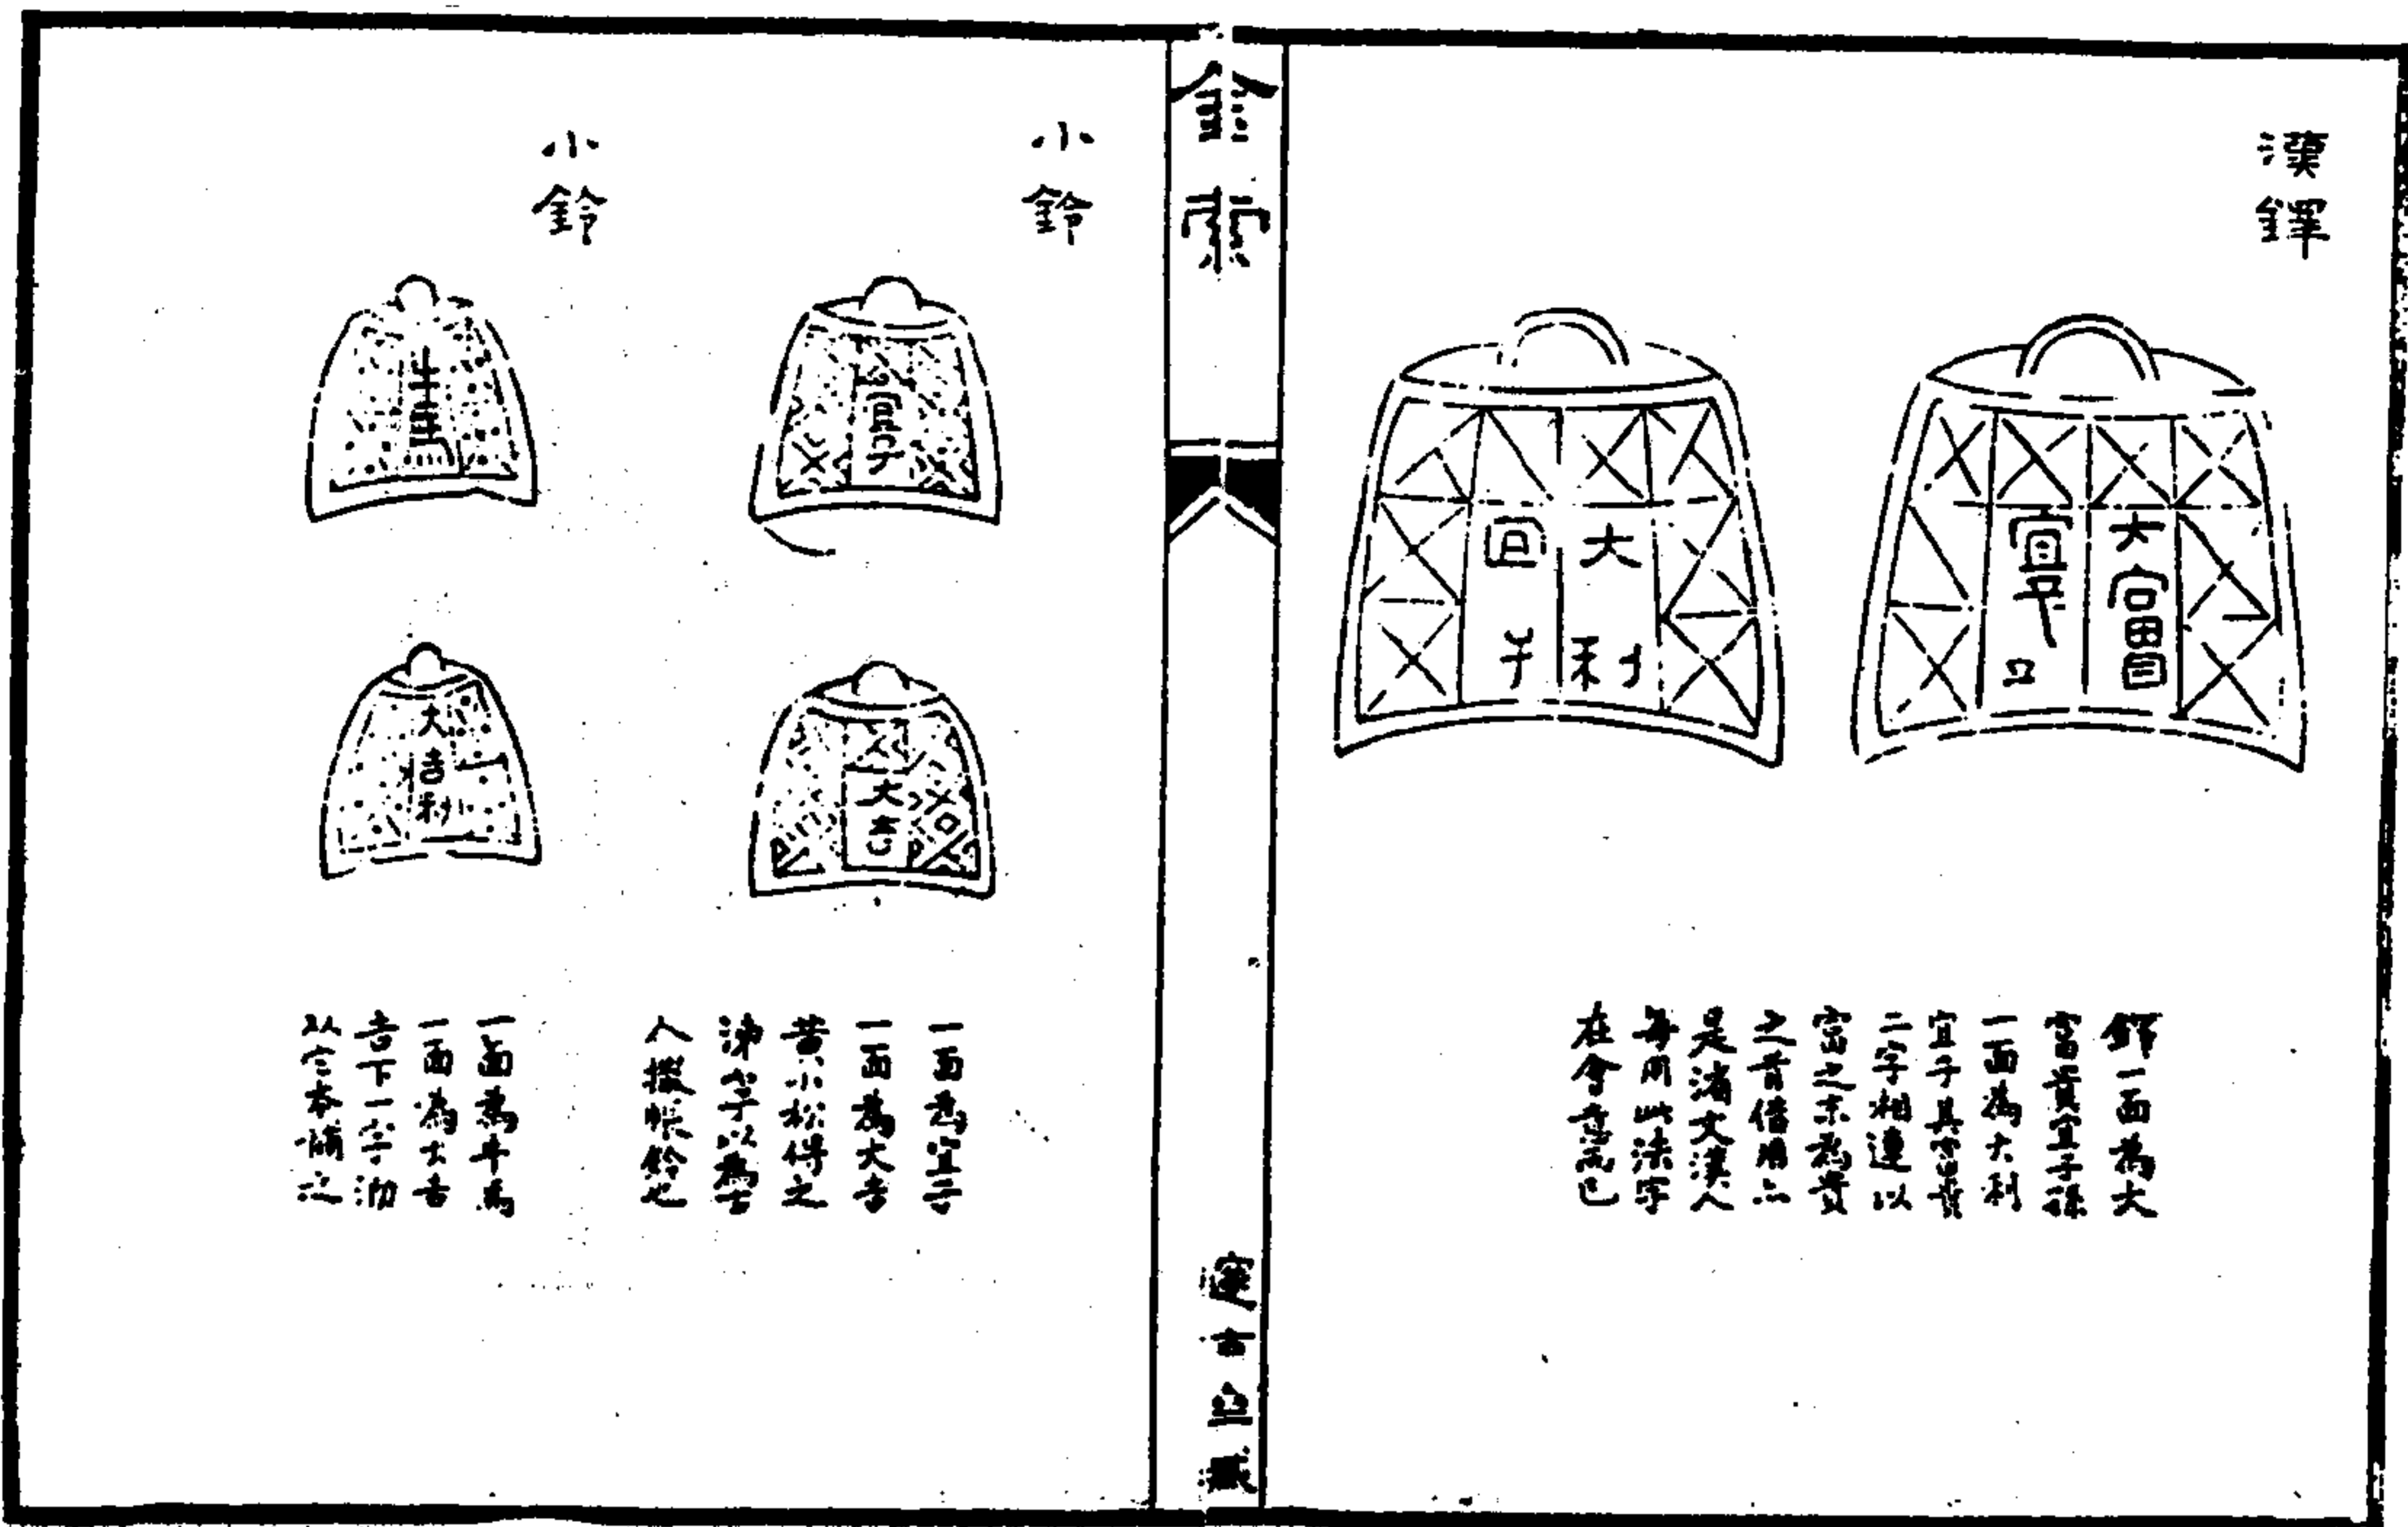 漢鐸
大富
宜子
大利
宜子
鐸一面為大
富貴宜子孫
一面為大利
宜子其富貴
二字相連以
富之末為貴
之首借用亦
是消文漢人
每用此法字
在會意而已
金索
邃古
藏
小鈴
宜子
大吉
一面為宜子
一面為大吉
黃小松得之
入撒帳鈴也
小鈴
牛馬
大吉利
一面為牛馬
一面為大吉
吉下一字泐